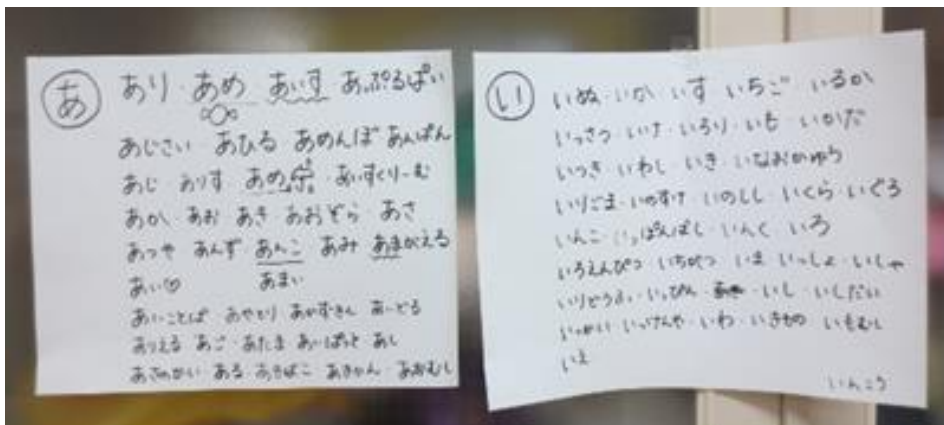 あ
あり・あめ あいす あっぷるぱい
あじさい あひる あめんぼ あんぱん
あじ ありす あめ あいすくりーむ
あか あお あき あおぞら あさ
あつや あんず あんこ あみ あまがえる
あい♡ あまい
あいことば あやとり あかずきん あいどる
ありえる あご あたま あいぱっど あし
あさのかい ある あきばこ あきかん あおむし
い
いぬ・いか いす いちご・いるか
いっさつ・いけ・いろり・いも・いかだ
いつき・いわし・いき・いなおかゆう
いりごま・いのすけ・いのしし・いくら・いぐろ
いんこ・いっぱんばし・いんく・いろ
いろえんぴつ いちがつ いま いっしょ・いしゃ
いりどうふ・いっぴん・いし・いしだい
いっかい いっけんや・いわ・いきもの いもむし
いえ
いんこう